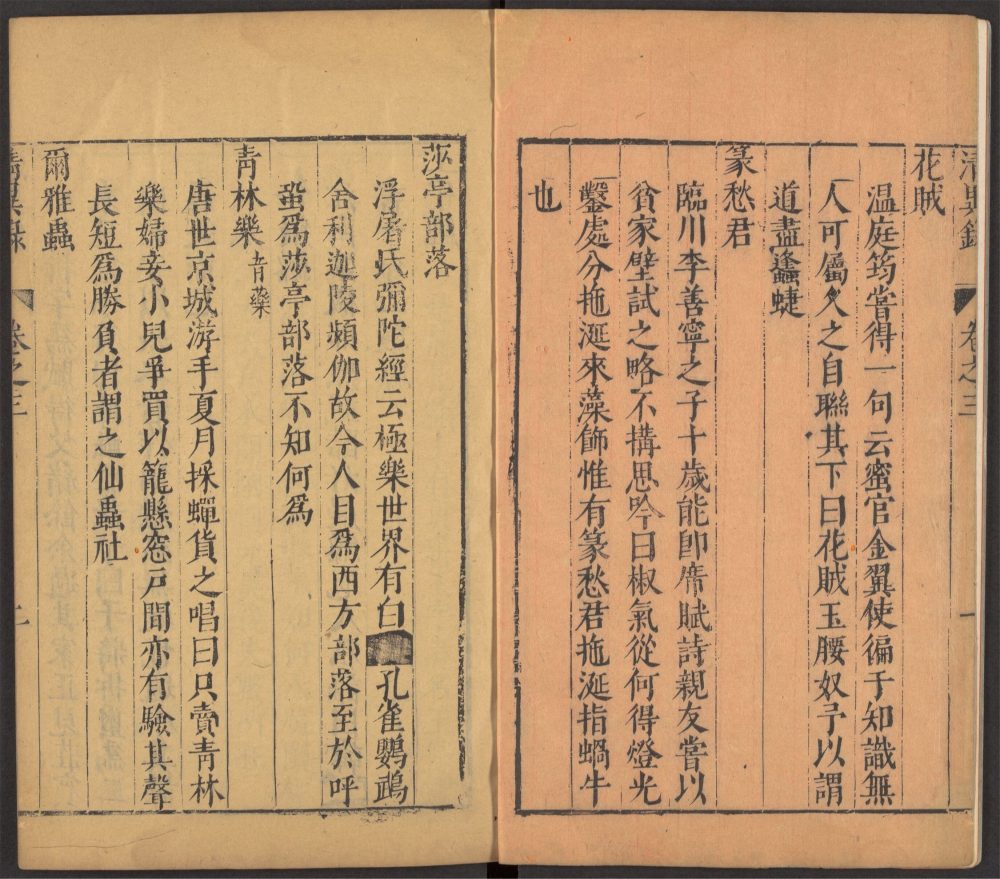 清異錄 卷之三 一
花賊
温庭筠嘗得一句云蜜官金翼使徧于知識無
人可屬久之自聯其下曰花賊玉腰奴予以謂
道盡蠭蜨
篆愁君
臨川李善寧之子十歲能卽席賦詩親友嘗以
貧家壁試之略不搆思吟曰椒氣從何得燈光
鑿處分拖涎來藻飾惟有篆愁君拖涎指蝸牛
也
莎亭部落
浮屠氏彌陀經云極樂世界有白 孔雀鸚鵡
舍利迦陵頻伽故令人目爲西方部落至於呼
蛩爲莎亭部落不知何爲
青林樂 青藥
唐世京城游手夏月採蟬貨之唱曰只賣青林
樂婦妾小兒爭買以籠懸窓戸間亦有驗其聲
長短爲勝負者謂之仙蟲社
爾雅蟲
清異錄 卷之三